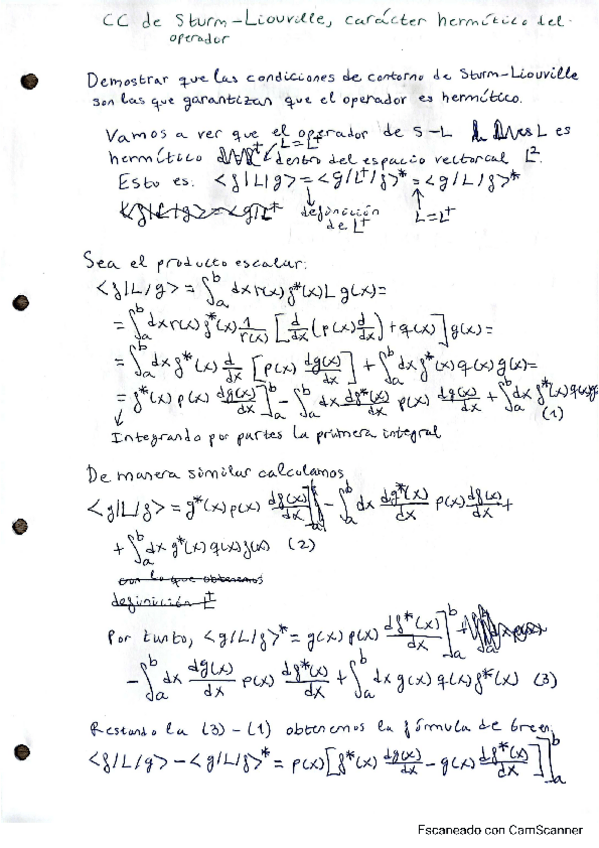 CC de Sturm-Liouville, carácter hermítico del
operador
Demostrar que las condiciones de contorno de Sturm-Liouville
son las que garantizan que el operador es hermítico.
Vamos a ver que el operador de S-L L es
hermítico L=L⁺ dentro del espacio vectorial L².
Esto es: <f/L/g> = <g/L⁺/f>* = <g/L/f>*
definición de L⁺ L=L⁺
Sea el producto escalar:
<f/L/g> = ∫ₐᵇ dx r(x) f*(x) L g(x) =
= ∫ₐᵇ dx r(x) f*(x) 1/r(x) [d/dx (p(x) d/dx) + q(x)] g(x) =
= ∫ₐᵇ dx f*(x) d/dx [p(x) dg(x)/dx] + ∫ₐᵇ dx f*(x) q(x) g(x) =
= f*(x) p(x) dg(x)/dx]ₐᵇ - ∫ₐᵇ dx df*(x)/dx p(x) dg(x)/dx + ∫ₐᵇ dx f*(x) q(x) g(x)
(1)
Integrando por partes la primera integral
De manera similar calculamos
<g/L/f> = g*(x) p(x) df(x)/dx]ₐᵇ - ∫ₐᵇ dx dg*(x)/dx p(x) df(x)/dx +
+ ∫ₐᵇ dx g*(x) q(x) f(x) (2)
con lo que obtenemos
definición L⁺
Por tanto, <g/L/f>* = g(x) p(x) df*(x)/dx]ₐᵇ
- ∫ₐᵇ dx dg(x)/dx p(x) df*(x)/dx + ∫ₐᵇ dx g(x) q(x) f*(x) (3)
Restando la (3) - (1) obtenemos la fórmula de Green:
<f/L/g> - <g/L/f>* = p(x) [f*(x) dg(x)/dx - g(x) df*(x)/dx]]ₐᵇ
Escaneado con CamScanner